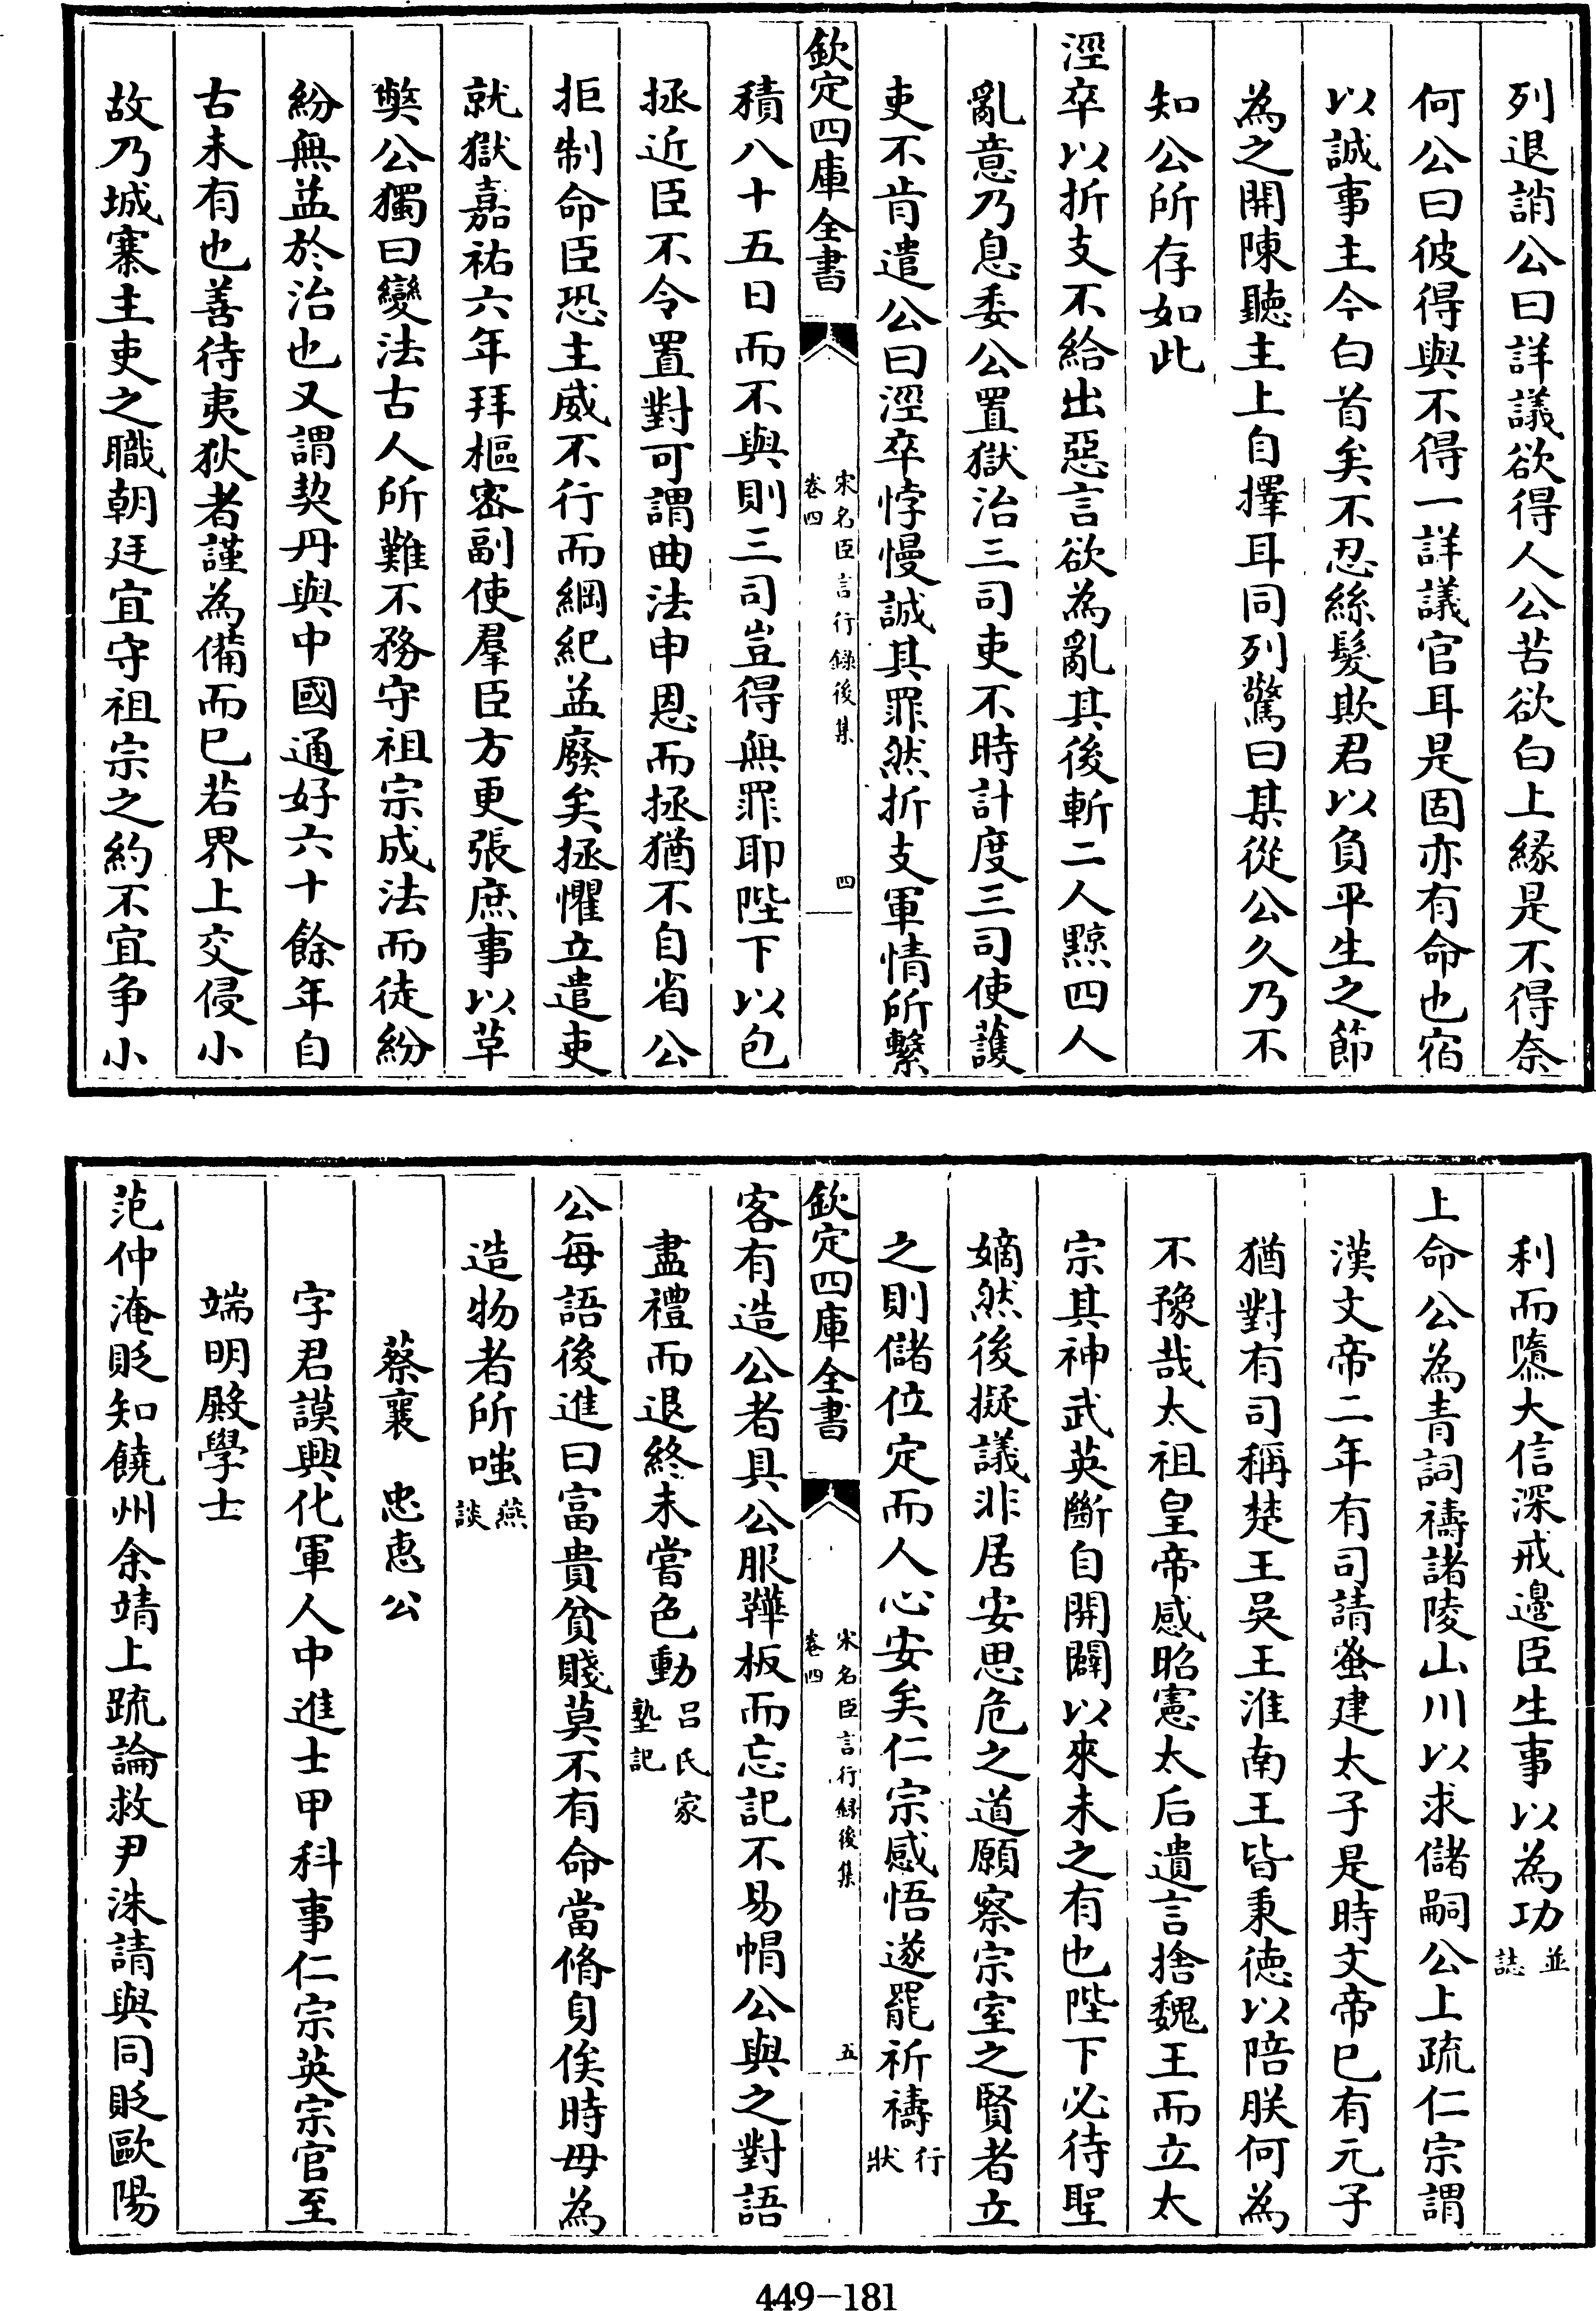 列退誚公曰詳議欲得人公苦欲白上緣是不得奈
何公曰彼得與不得一詳議官耳是固亦有命也宿
以誠事主今白首矣不忍絲髮欺君以負平生之節
為之開陳聽主上自擇耳同列驚曰某從公久乃不
知公所存如此
涇卒以折支不給出惡言欲為亂其後斬二人黥四人
亂意乃息委公置獄治三司吏不時計度三司使護
吏不肯遣公曰涇卒悖慢誠其罪然折支軍情所繫
欽定四庫全書
宋名臣言行錄後集
卷四
四
積八十五日而不與則三司豈得無罪耶陛下以包
拯近臣不令置對可謂曲法申恩而拯猶不自省公
拒制命臣恐主威不行而綱紀益廢矣拯懼立遣吏
就獄嘉祐六年拜樞密副使羣臣方更張庶事以草
獘公獨曰變法古人所難不務守祖宗成法而徒紛
紛無益於治也又謂契丹與中國通好六十餘年自
古未有也善待夷狄者謹為備而已若界上交侵小
故乃城寨主吏之職朝廷宜守祖宗之約不宜争小
利而隳大信深戒邊臣生事以為功
並
誌
上命公為青詞禱諸陵山川以求儲嗣公上疏仁宗謂
漢文帝二年有司請蚤建太子是時文帝巳有元子
猶對有司稱楚王吳王淮南王皆秉徳以陪朕何為
不豫哉太祖皇帝感昭憲太后遺言捨魏王而立太
宗其神武英斷自開闢以來未之有也陛下必待聖
嫡然後擬議非居安思危之道願察宗室之賢者立
之則儲位定而人心安矣仁宗感悟遂罷祈禱
行
狀
欽定四庫全書
宋名臣言行録後集
卷四
五
客有造公者具公服鞾板而忘記不易帽公與之對語
盡禮而退終未嘗色動
吕氏家
塾記
公每語後進曰富貴貧賤莫不有命當脩身俟時毋為
造物者所嗤
燕
談
蔡襄　忠惠公
字君謨興化軍人中進士甲科事仁宗英宗官至
端明殿學士
范仲淹貶知饒州余靖上疏論救尹洙請與同貶歐陽
449-181